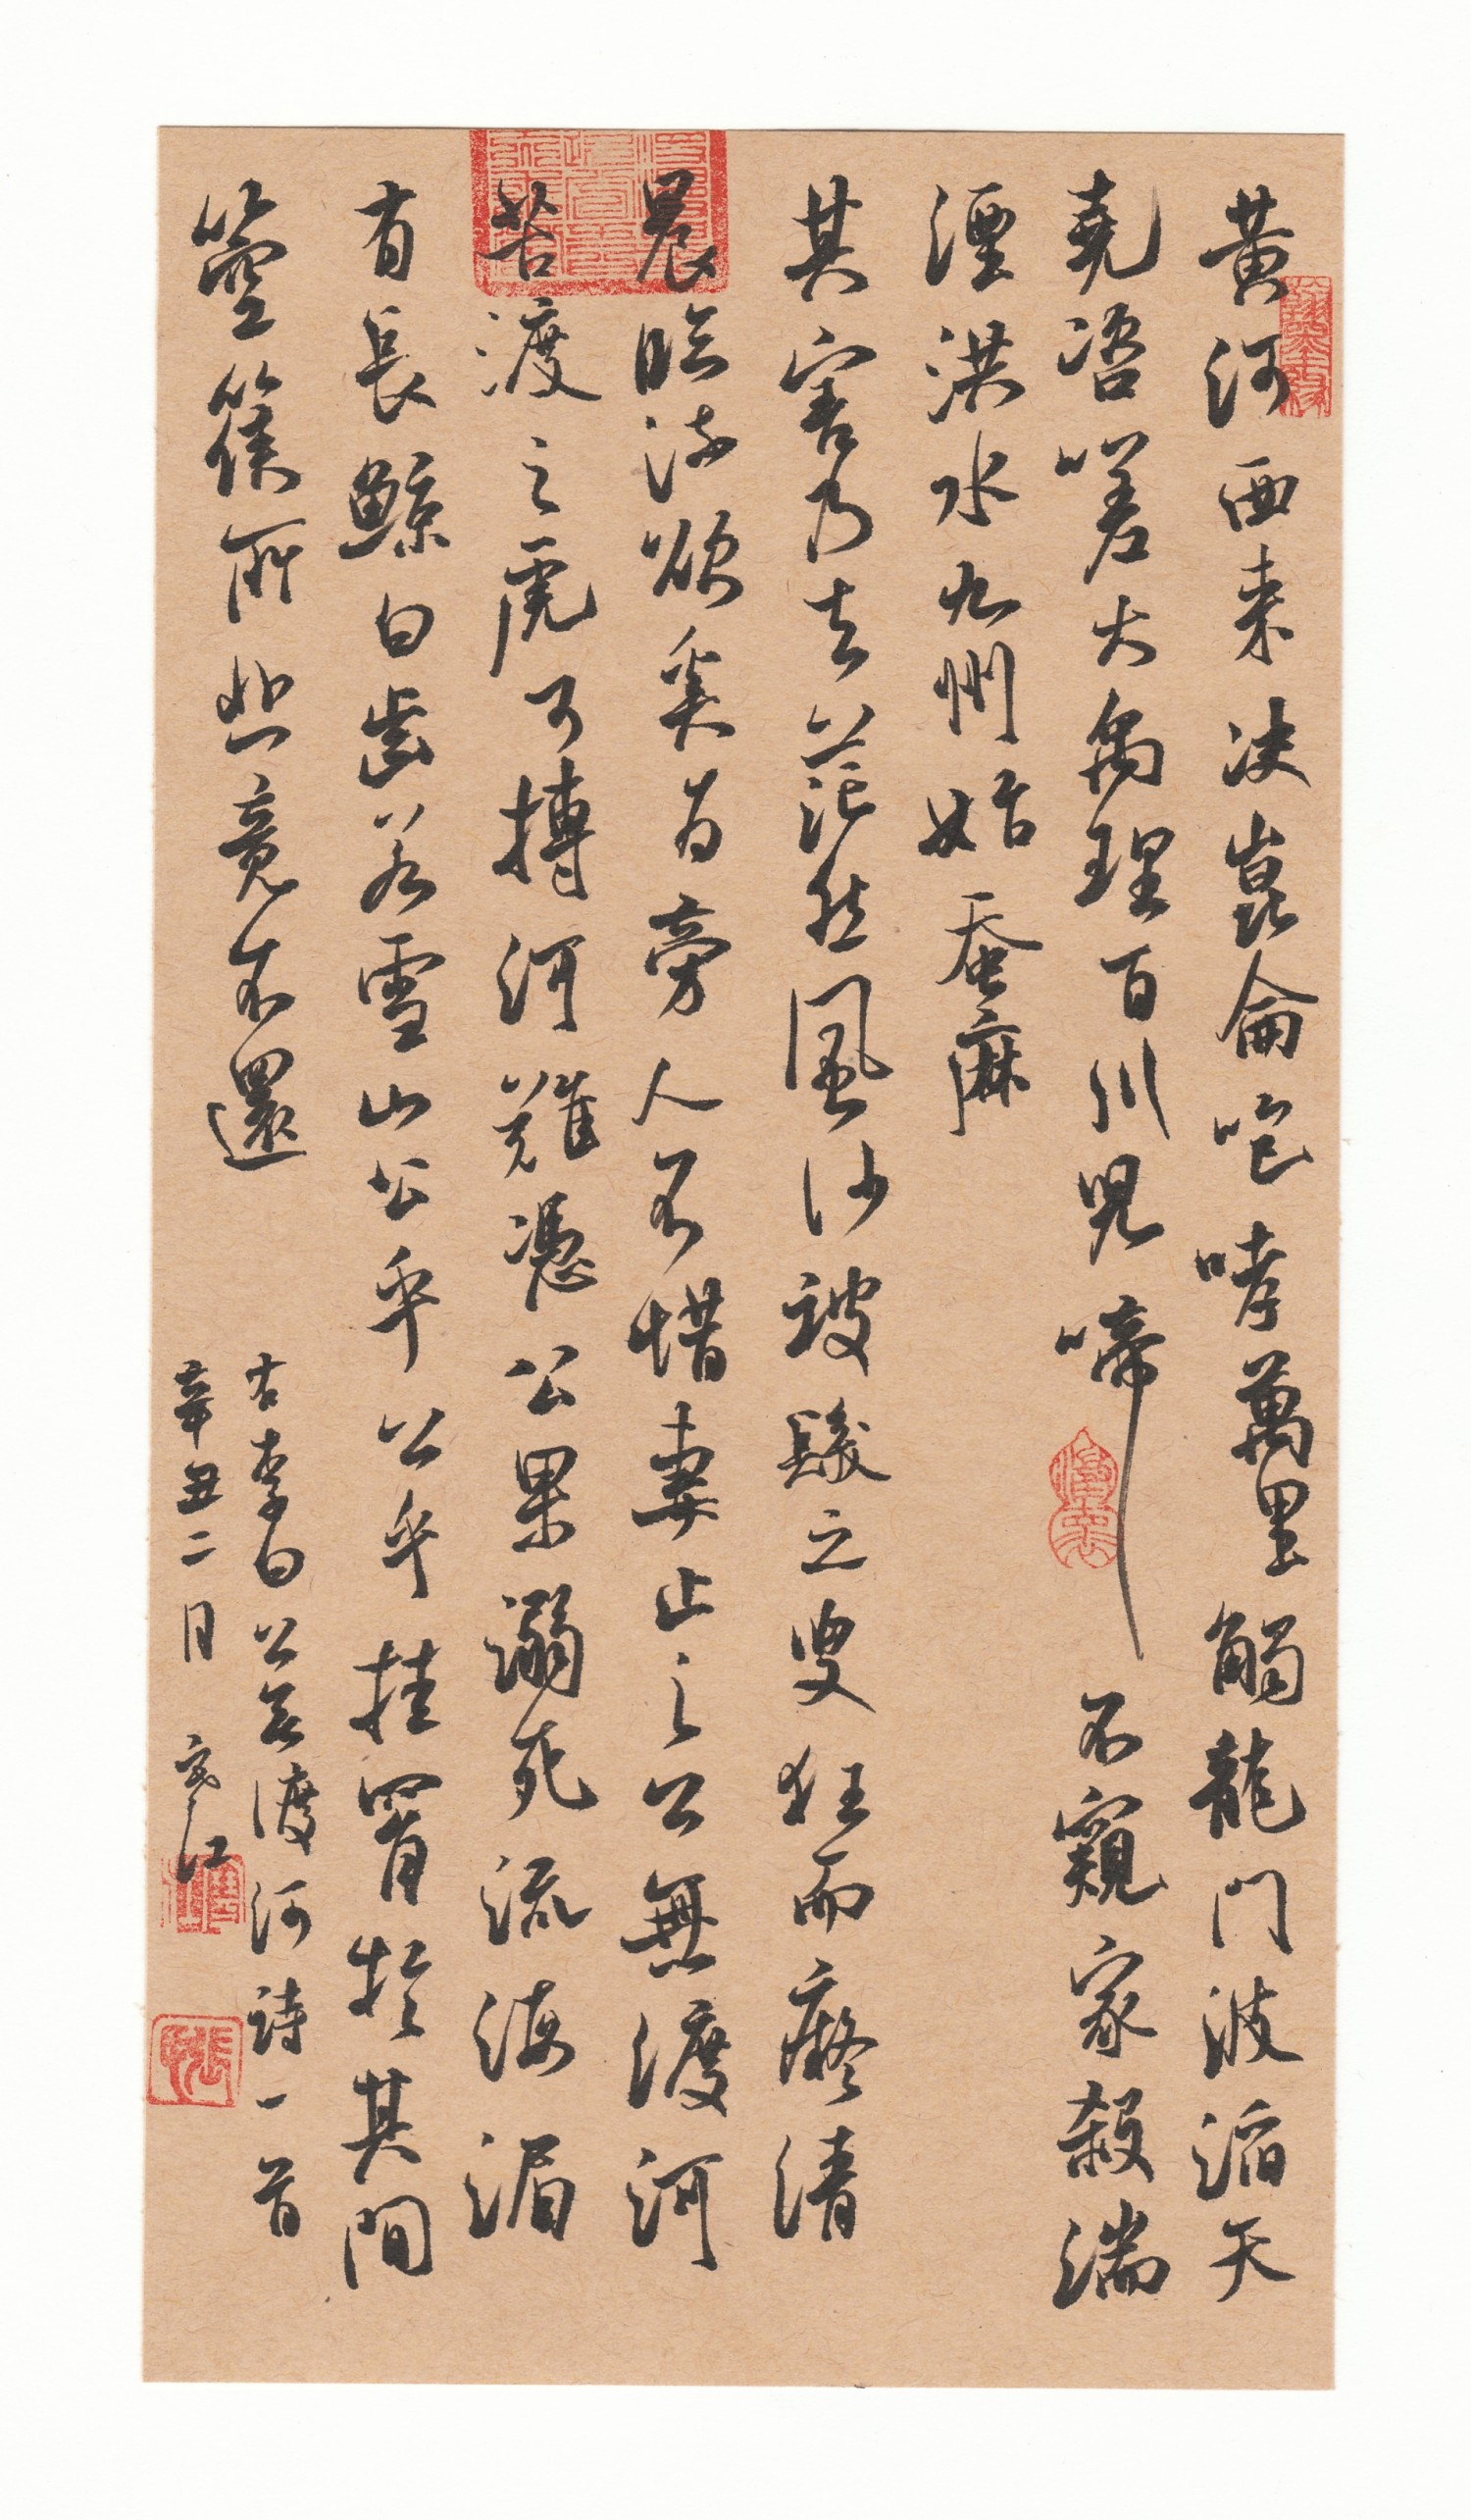 黄河西来决崑崙咆哮萬里觸龍門波滔天
堯咨嗟大禹理百川兒啼不窺家殺湍
湮洪水九州始蚕麻
其害乃去茫然風沙被髮之叟狂而癡清
晨臨流欲奚为旁人不惜妻止之公無渡河
苦渡之虎可搏河難憑公果溺死流海湄
有長鯨白齒若雪山公乎公乎挂罥於其間
箜篌所悲竟不還
右李白公无渡河詩一首
辛丑二月